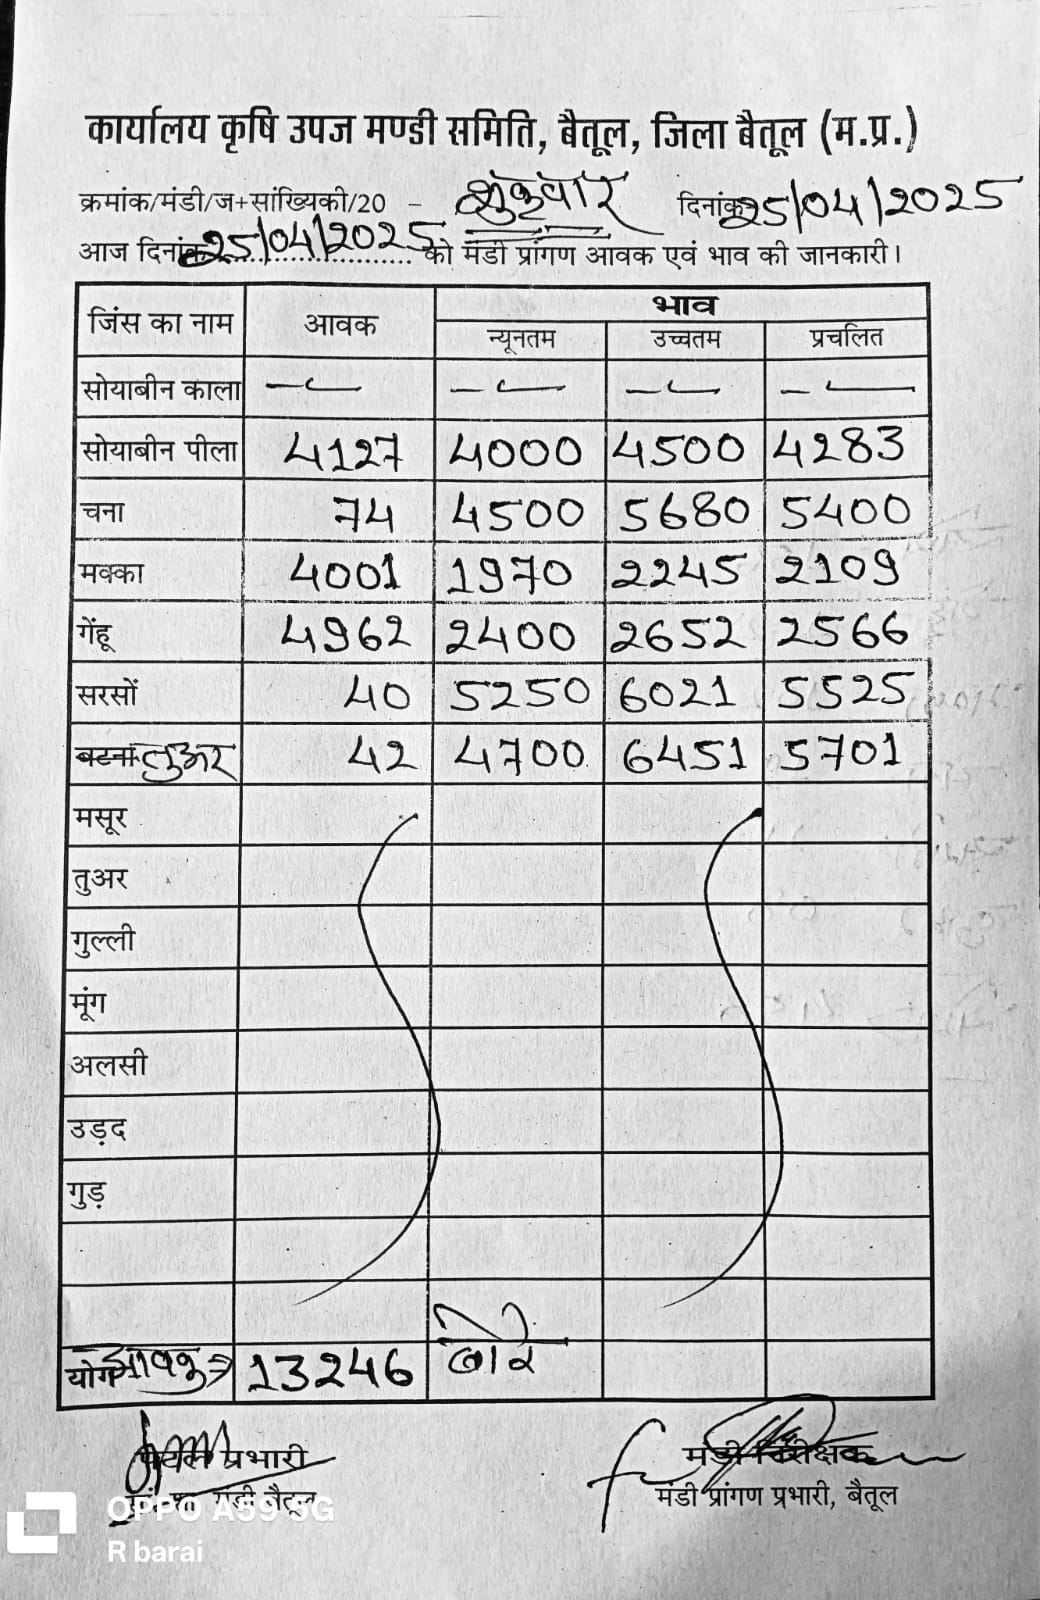 कार्यालय कृषि उपज मण्डी समिति, बैतूल, जिला बैतूल (म.प्र.)
क्रमांक/मंडी/ज+सांख्यिकी/20 - शुक्रवार दिनांक 25/04/2025
आज दिनांक 25/04/2025 को मंडी प्रांगण आवक एवं भाव की जानकारी।
जिंस का नाम आवक भाव
न्यूनतम उच्चतम प्रचलित
सोयाबीन काला — — — —
सोयाबीन पीला 4127 4000 4500 4283
चना 74 4500 5680 5400
मक्का 4001 1970 2245 2109
गेंहू 4962 2400 2652 2566
सरसों 40 5250 6021 5525
बटना तुअर 42 4700 6451 5701
मसूर
तुअर
गुल्ली
मूंग
अलसी
उड़द
गुड़
योग आवक → 13246 बोरे
प्रभारी मंडी निरीक्षक
मंडी बैतूल मंडी प्रांगण प्रभारी, बैतूल
OPPO A59 5G
R barai